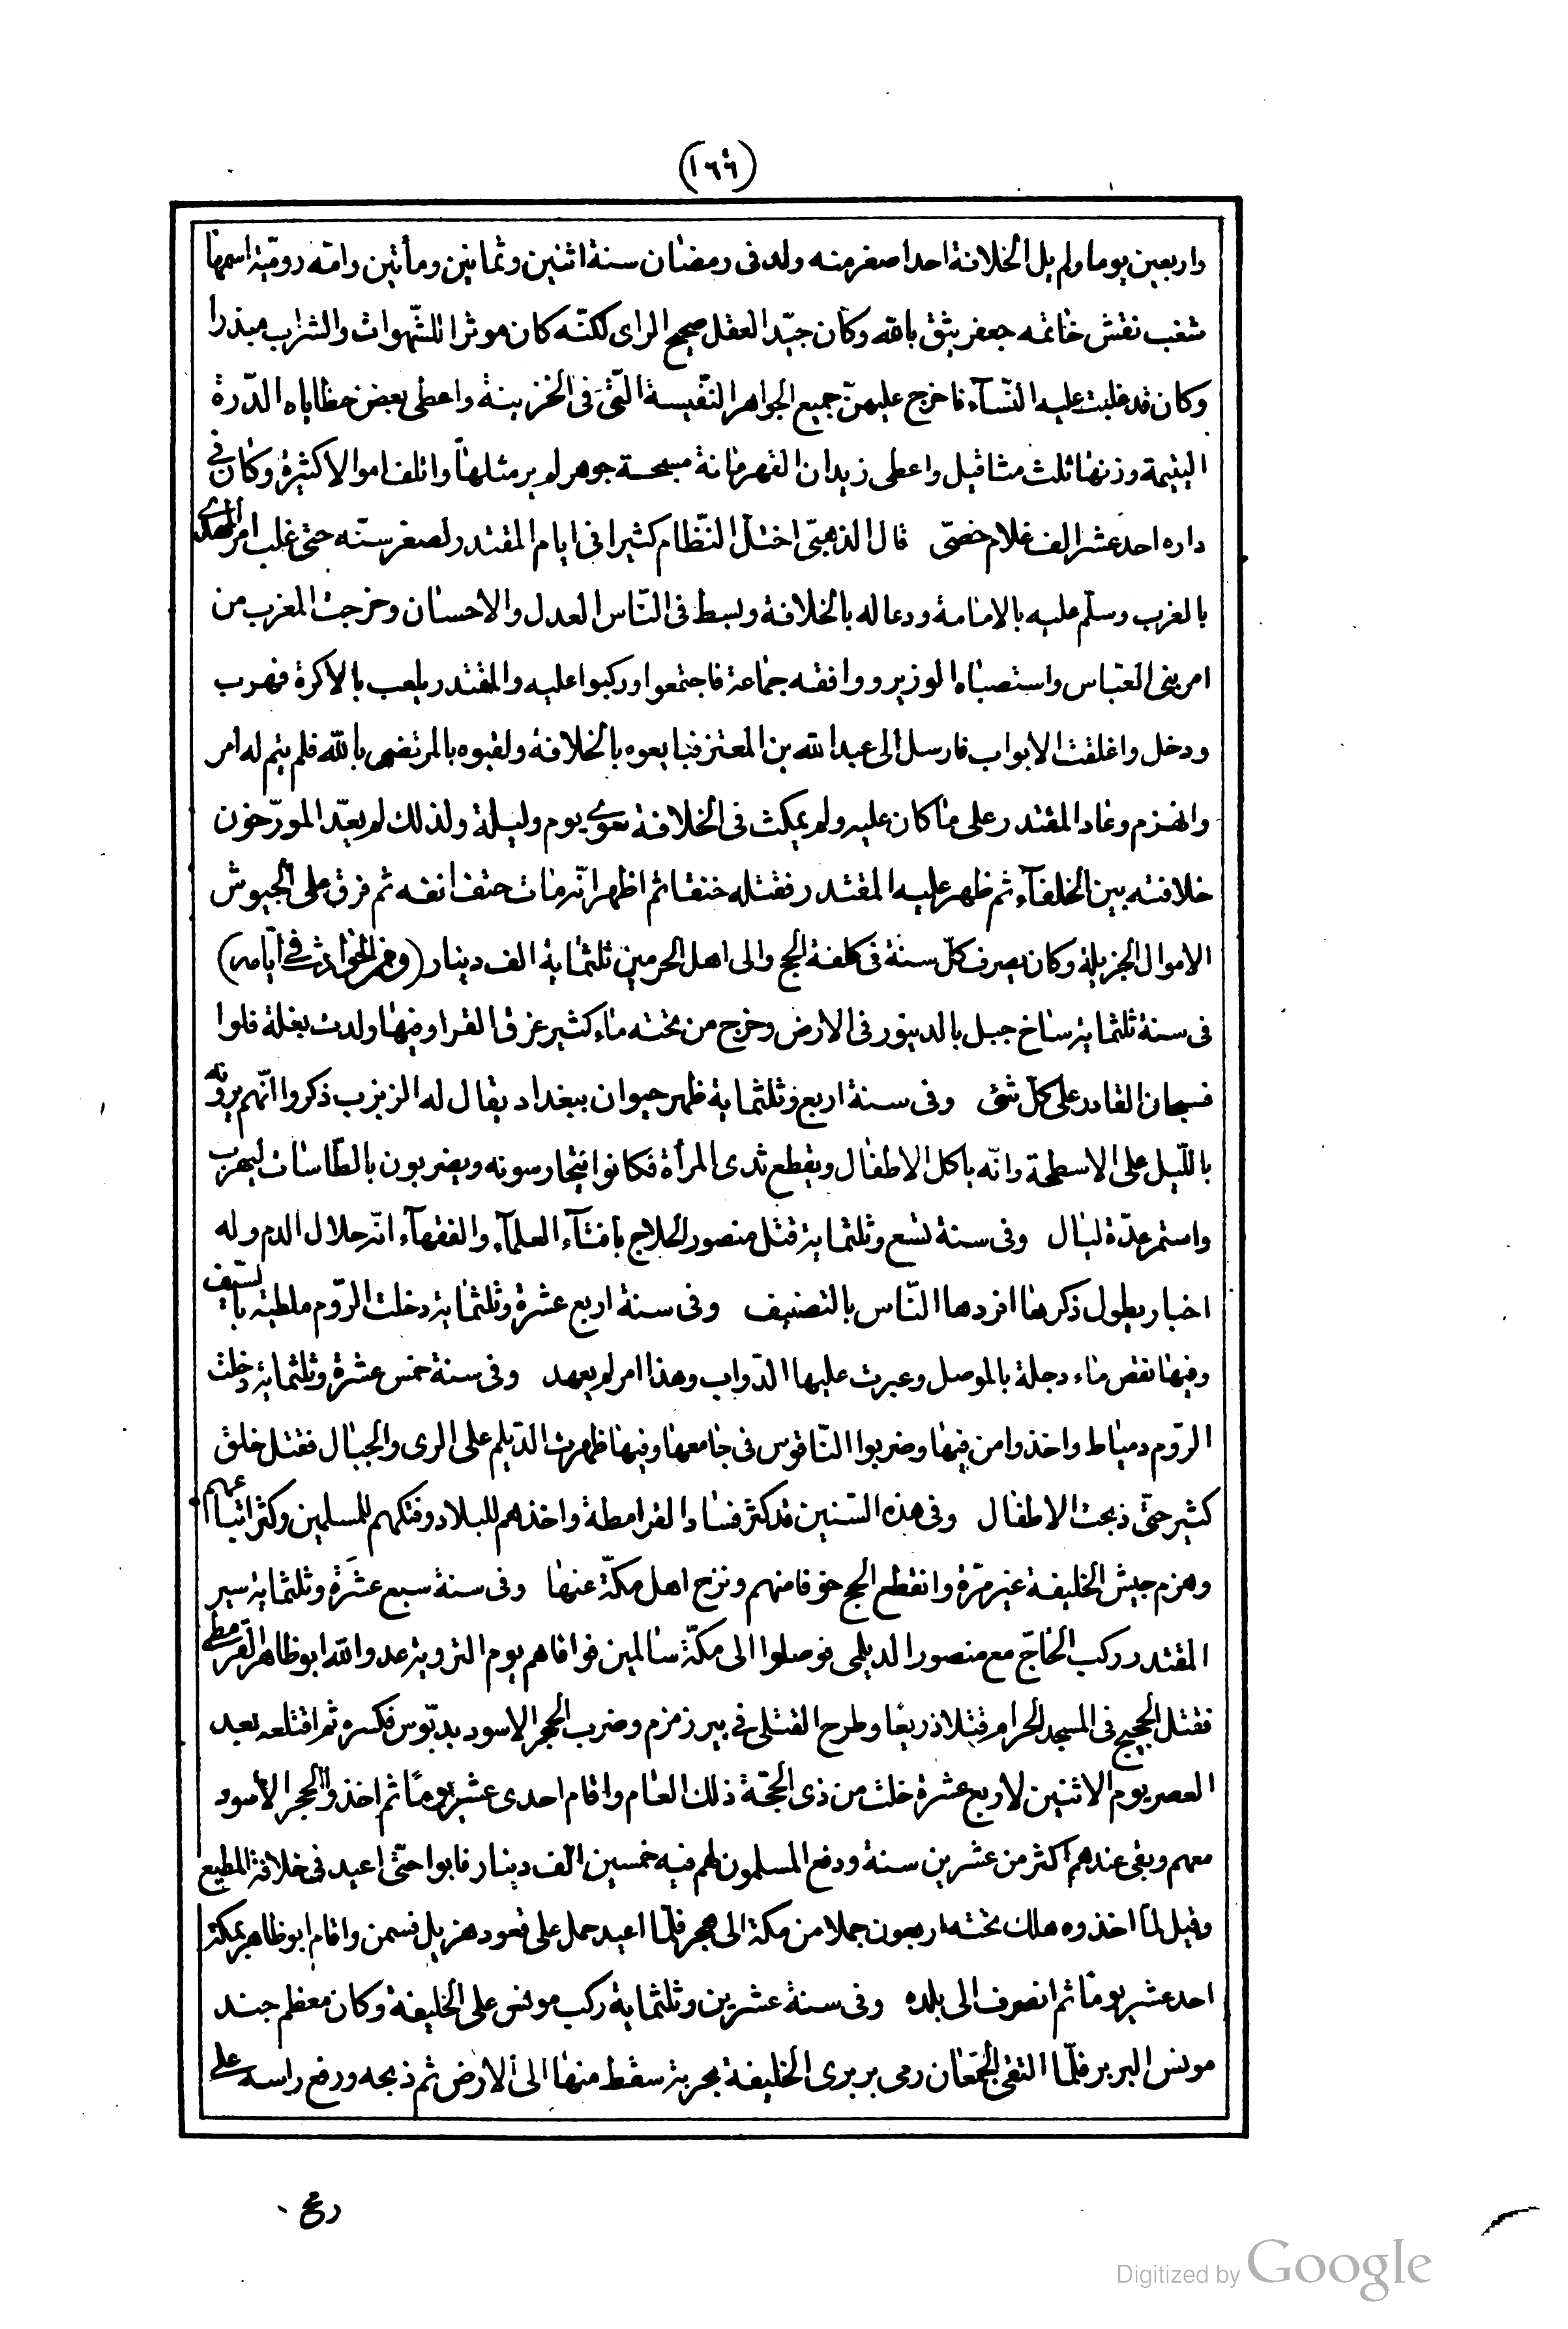 (١٦٦)
واربعين يوما ولم يل الخلافة احد اصغر منه ولد فى رمضان سنة اثنين وثمانين ومأتين وامّه روميّة اسمها
شغب نقش خاتمه جعفر يثق بالله وكان جيّد العقل صحيح الراى لكنّه كان موثرا للشّهوات والشراب مبذرا
وكان قد غلبت عليه النّسآء فاخرج عليهنّ جميع الجواهر النّفيسة الّتى فى الخزينة واعطى بعض حظاياه الدّرة
اليتيمة وزنها ثلث مثاقيل واعطى زيدان القهرمانة مسبحة جوهر لم ير مثلها واتلف اموالا كثيرة وكان فى
داره احد عشر الف غلام خصّى قال الذهبىّ اختل النّظام كثيرا فى ايام المقتدر لصغر سنّه حتى غلب امر المهدى
بالغرب وسلّم عليه بالامامة ودعا له بالخلافة وبسط فى النّاس العدل والاحسان وخرجت المغرب من
امر بنى العبّاس واستصباه الوزير ووافقه جماعة فاجتمعوا وركبوا عليه والمقتدر يلعب بالاكرة فهرب
ودخل واغلقت الابواب فارسل الى عبد الله بن المعتز فبايعوه بالخلافة ولقبوه بالمرتضى بالله فلم يتم له امر
وانهزم وعاد المقتدر على ما كان عليه ولم يمكث فى الخلافة سوى يوم وليلة ولذلك لم يعدّ المورّخون
خلافته بين الخلفآء ثم ظهر عليه المقتدر فقتله خنقا ثم اظهر انّه مات حتف انفه ثم فرق على الجيوش
الاموال الجزيلة وكان يصرف كلّ سنة فى كلفة الحج والى اهل الحرمين ثلثماية الف دينار (ومن الحوادث فى ايّامه)
فى سنة ثلثماية ساخ جبل بالدينور فى الارض وخرج من تحته ماء كثير غرق القرا وفيها ولدت بغلة فلوا
فسبحان القادر على كلّ شئ وفى سنة اربع وثلثماية ظهر حيوان ببغداد يقال له الزبزب ذكروا انّهم يرونه
باللّيل على الاسطحة وانّه ياكل الاطفال ويقطع ثدى المرأة فكانوا يتحارسونه ويضربون بالطّاسات ليهرب
واستمر عدّة ليال وفى سنة تسع وثلثماية قتل منصور الحلاج بافتآء العلمآء والفقهآء انّه حلال الدم وله
اخبار يطول ذكرها افردها النّاس بالتصنيف وفى سنة اربع عشرة وثلثماية دخلت الرّوم ملطية بالسّيف
وفيها نقص ماء دجلة بالموصل وعبرت عليها الدّواب وهذا امر لم يعهد وفى سنة خمس عشرة وثلثماية دخلت
الرّوم دمياط واخذوا من فيها وضربوا النّاقوس فى جامعها وفيها ظهرت الدّيلم على الرى والجبال فقتل خلق
كثير حتّى ذبحت الاطفال وفى هذه السّنين قد كثر فساد القرامطة واخذهم للبلاد وفتكهم للمسلمين وكثر اتباعهم
وهزم جيش الخليفة غير مرّة وانقطع الحج خوفا منهم ونزح اهل مكّة عنها وفى سنة سبع عشَرة وثلثماية سير
المقتدر ركب الحاجّ مع منصور الديلمى فوصلوا الى مكّة سالمين فوافاهم يوم التروية عدو الله ابو ظاهر القرمطى
فقتل الحجيج فى المسجد الحرام قتلا ذريعا وطرح القتلى فى بير زمزم وضرب الحجر الاسود بدبّوس فكسره ثم اقتلعه بعد
العصر يوم الاثنين لاربع عشرة خلت من ذى الحجّة ذلك العام واقام احدى عشر يومًا ثم اخذوا الحجر الأسود
معهم وبقى عندهم اكثر من عشرين سنة ودفع المسلمون لهم فيه خمسين الف دينار فابوا حتّى اعيد فى خلافة المطيع
وقيل لمّا اخذوه هلك تحته اربعون جملا من مكة الى هجر فلمّا اعيد حمل على قعود هزيل فسمن واقام ابو ظاهر بمكة
احد عشر يومًا ثم انصرف الى بلده وفى سنة عشرين وثلثماية ركب مونس على الخليفة وكان معظم جند
مونس البربر فلمّا التقى الجمعان رمى بربرى الخليفة بحربة سقط منها الى الارض ثم ذبحه ورفع راسه على
Digitized by Google